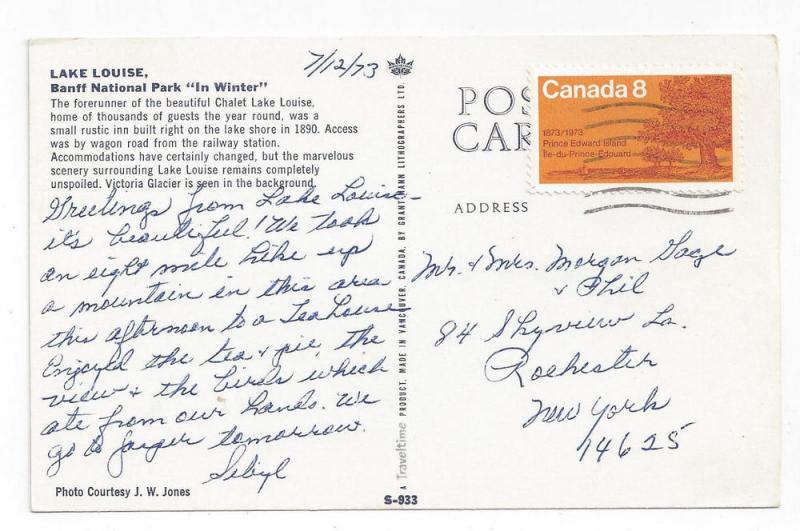 7/12/73
LAKE LOUISE,
Banff National Park "In Winter"
The forerunner of the beautiful Chalet Lake Louise,
home of thousands of guests the year round, was a
small rustic inn built right on the lake shore in 1890. Access
was by wagon road from the railway station.
Accommodations have certainly changed, but the marvelous
scenery surrounding Lake Louise remains completely
unspoiled. Victoria Glacier is seen in the background.
Greetings from Lake Louise -
it's beautiful! We took
an eight mile hike up
a mountain in this area
this afternoon to a Teahouse
Enjoyed the tea + pie, the
view + the birds which
ate from our hands. We
go to Jasper tomorrow.
Sibyl
Photo Courtesy J. W. Jones
A Traveltime PRODUCT. MADE IN VANCOUVER, CANADA, BY GRANT-MANN LITHOGRAPHERS LTD.
S-933
POS
CAR
Canada 8
1873/1973
Prince Edward Island
Île-du-Prince-Édouard
ADDRESS
Mr. + Mrs. Morgan
+ Phil
84 Skyview Ln.
Rochester
New York
14625